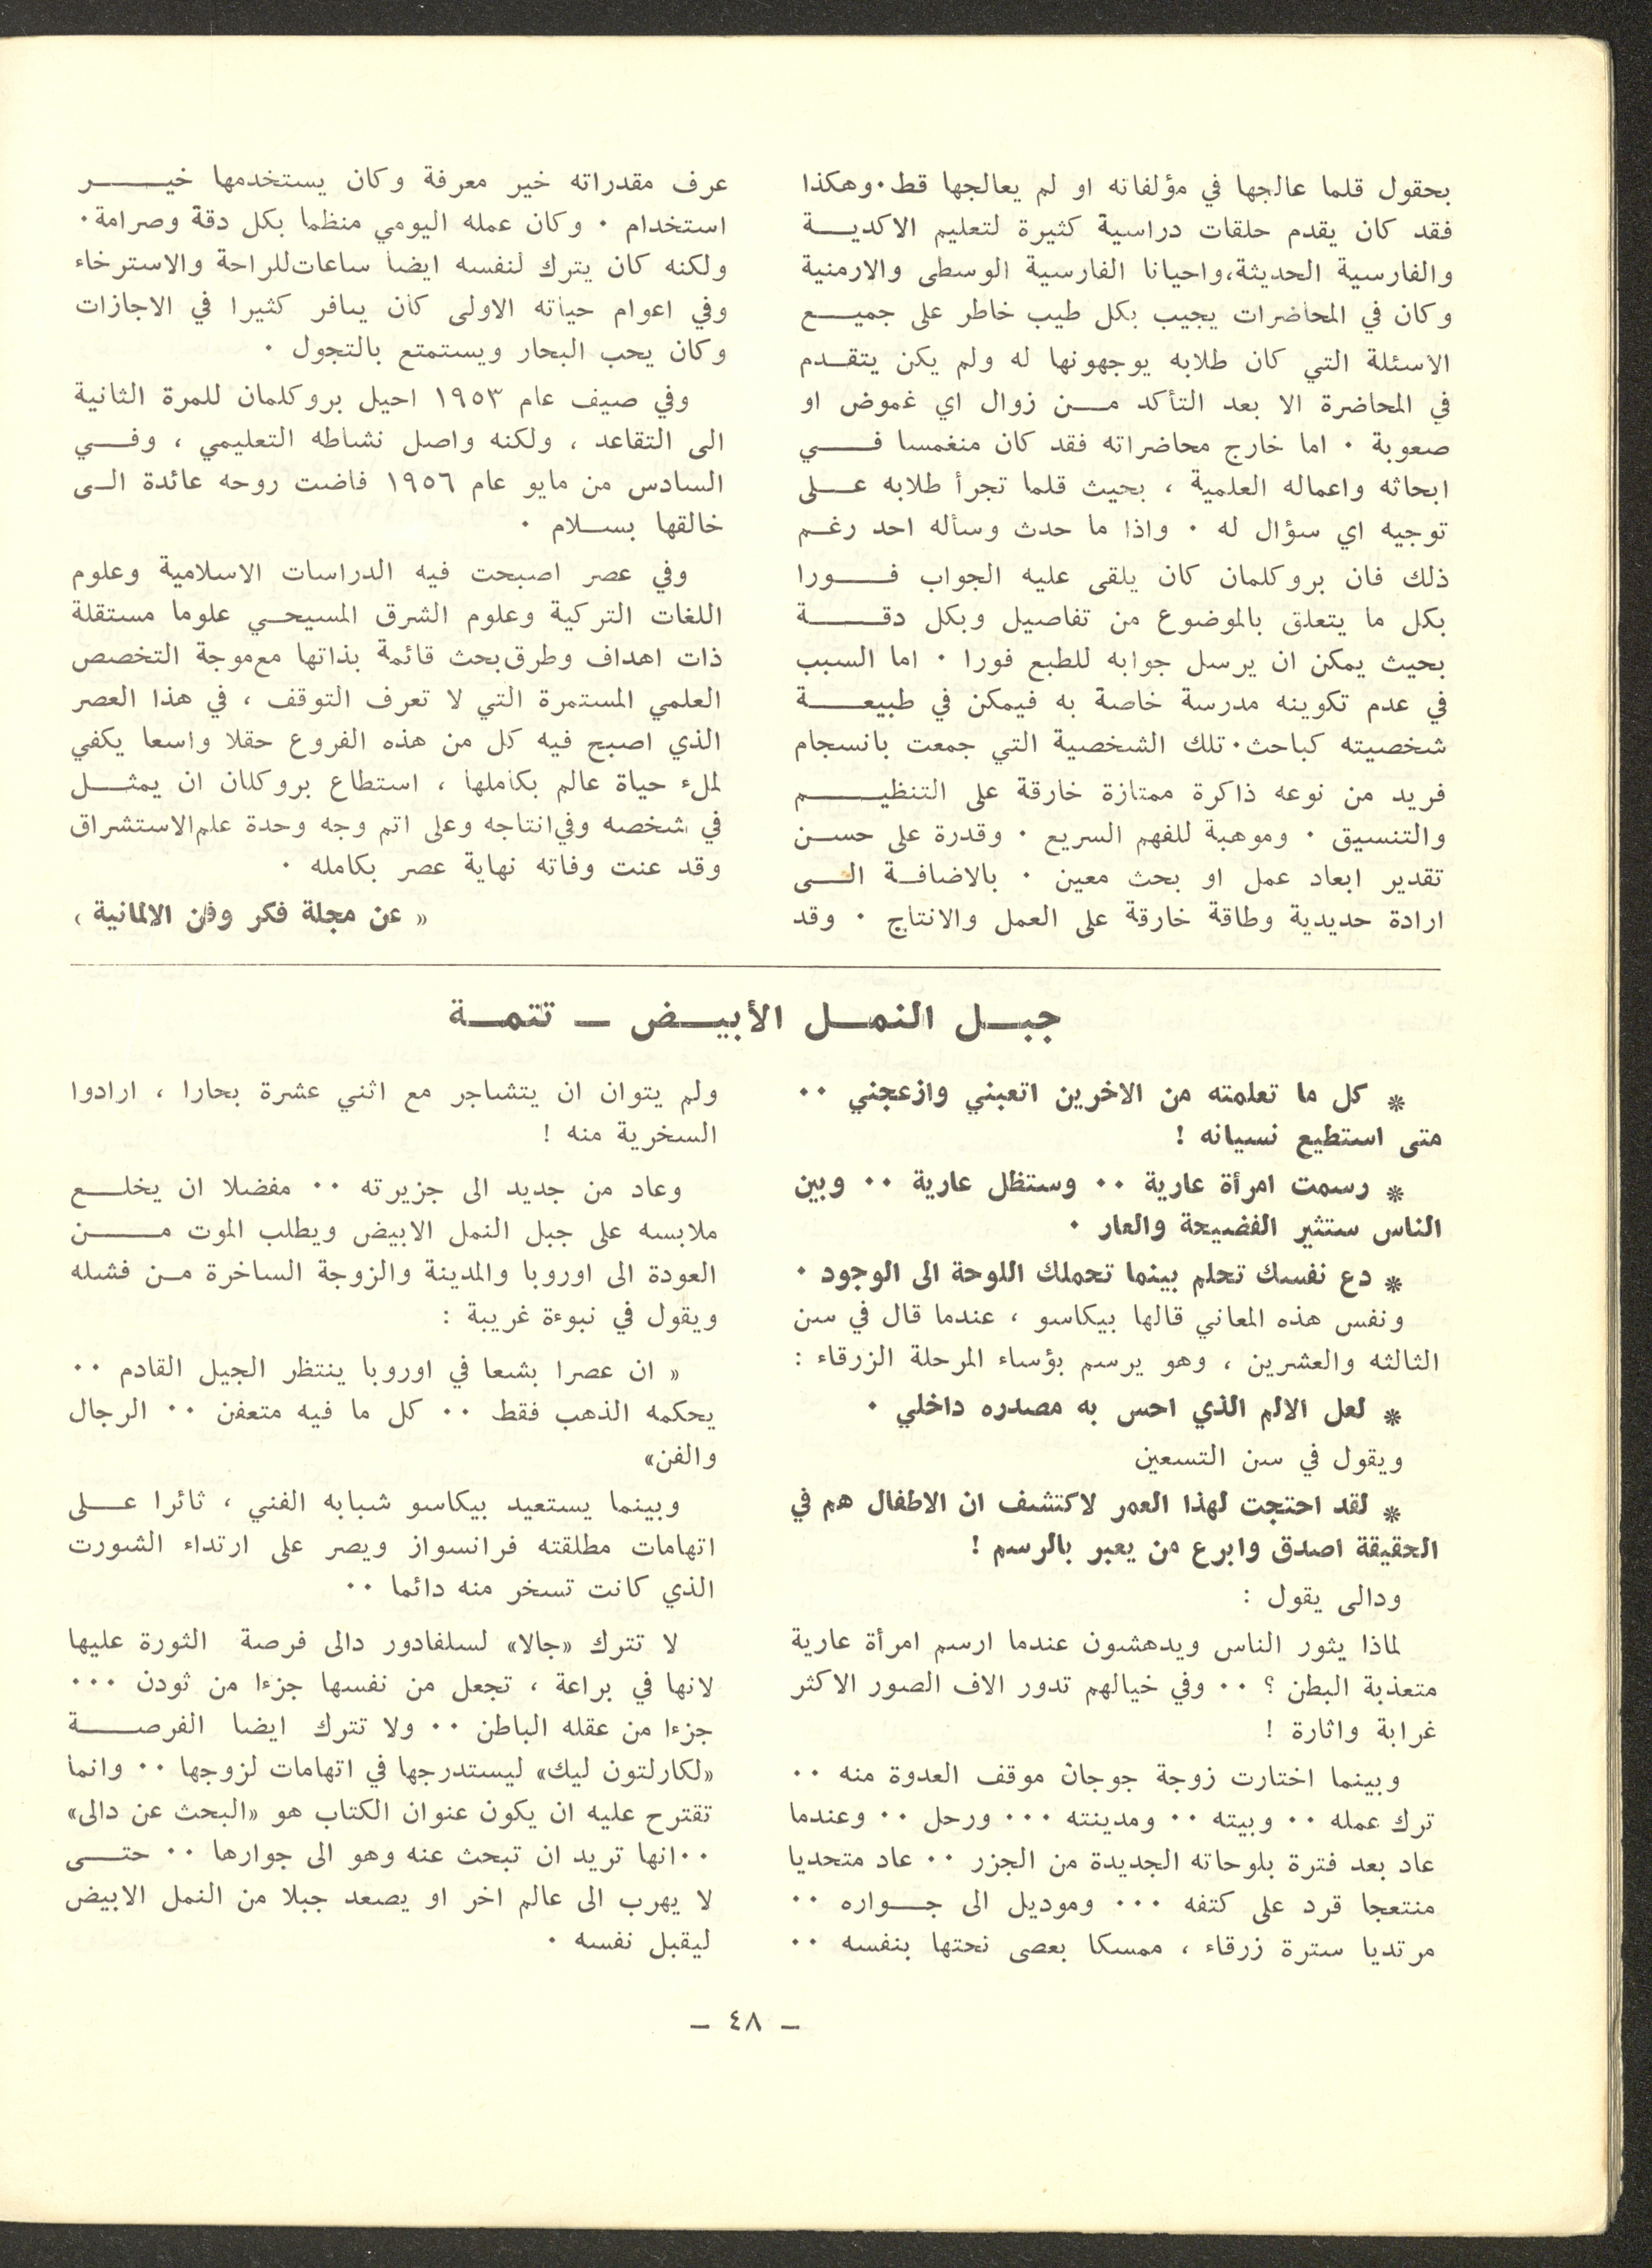 بحقول قلما عالجها في مؤلفاته او لم يعالجها قط٠وهكذا
فقد كان يقدم حلقات دراسية كثيرة لتعليم الاكدية
والفارسية الحديثة،واحيانا الفارسية الوسطى والارمنية
وكان في المحاضرات يجيب بكل طيب خاطر على جميع
الاسئلة التي كان طلابه يوجهونها له ولم يكن يتقدم
في المحاضرة الا بعد التأكد من زوال اي غموض او
صعوبة ٠ اما خارج محاضراته فقد كان منغمسا في
ابحاثه واعماله العلمية ، بحيث قلما تجرأ طلابه على
توجيه اي سؤال له ٠ واذا ما حدث وسأله احد رغم
ذلك فان بروكلمان كان يلقى عليه الجواب فورا
بكل ما يتعلق بالموضوع من تفاصيل وبكل دقة
بحيث يمكن ان يرسل جوابه للطبع فورا ٠ اما السبب
في عدم تكوينه مدرسة خاصة به فيمكن في طبيعة
شخصيته كباحث٠تلك الشخصية التي جمعت بانسجام
فريد من نوعه ذاكرة ممتازة خارقة على التنظيم
والتنسيق ٠ وموهبة للفهم السريع ٠ وقدرة على حسن
تقدير ابعاد عمل او بحث معين ٠ بالاضافة الى
ارادة حديدية وطاقة خارقة على العمل والانتاج ٠ وقد
عرف مقدراته خير معرفة وكان يستخدمها خير
استخدام ٠ وكان عمله اليومي منظما بكل دقة وصرامة٠
ولكنه كان يترك لنفسه ايضا ساعات للراحة والاسترخاء
وفي اعوام حياته الاولى كان يسافر كثيرا في الاجازات
وكان يحب البحار ويستمتع بالتجول ٠
وفي صيف عام ١٩٥٣ احيل بروكلمان للمرة الثانية
الى التقاعد ، ولكنه واصل نشاطه التعليمي ، وفي
السادس من مايو عام ١٩٥٦ فاضت روحه عائدة الى
خالقها بسلام ٠
وفي عصر اصبحت فيه الدراسات الاسلامية وعلوم
اللغات التركية وعلوم الشرق المسيحي علوما مستقلة
ذات اهداف وطرق بحث قائمة بذاتها مع موجة التخصص
العلمي المستمرة التي لا تعرف التوقف ، في هذا العصر
الذي اصبح فيه كل من هذه الفروع حقلا واسعا يكفي
لملء حياة عالم بكاملها ، استطاع بروكلان ان يمثل
في شخصه وفي انتاجه وعلى اتم وجه وحدة علم الاستشراق
وقد عنت وفاته نهاية عصر بكامله ٠
« عن مجلة فكر وفن الالمانية »
جبل النمل الأبيض — تتمة
* كل ما تعلمته من الاخرين اتعبني وازعجني ٠٠
متى استطيع نسيانه !
* رسمت امرأة عارية ٠٠ وستظل عارية ٠٠ وبين
الناس ستثير الفضيحة والعار ٠
* دع نفسك تحلم بينما تحملك اللوحة الى الوجود ٠
ونفس هذه المعاني قالها بيكاسو ، عندما قال في سن
الثالثه والعشرين ، وهو يرسم بؤساء المرحلة الزرقاء :
* لعل الالم الذي احس به مصدره داخلي ٠
ويقول في سن التسعين
* لقد احتجت لهذا العمر لاكتشف ان الاطفال هم في
الحقيقة اصدق وابرع من يعبر بالرسم !
ودالى يقول :
لماذا يثور الناس ويدهشون عندما ارسم امرأة عارية
متعذبة البطن ؟ ٠٠ وفي خيالهم تدور الاف الصور الاكثر
غرابة واثارة !
وبينما اختارت زوجة جوجان موقف العدوة منه ٠٠
ترك عمله ٠٠ وبيته ٠٠ ومدينته ٠٠٠ ورحل ٠٠ وعندما
عاد بعد فترة بلوحاته الجديدة من الجزر ٠٠ عاد متحديا
منتعجا قرد على كتفه ٠٠٠ وموديل الى جواره ٠٠
مرتديا سترة زرقاء ، ممسكا بعصى نحتها بنفسه ٠٠
ولم يتوان ان يتشاجر مع اثني عشرة بحارا ، ارادوا
السخرية منه !
وعاد من جديد الى جزيرته ٠٠ مفضلا ان يخلع
ملابسه على جبل النمل الابيض ويطلب الموت من
العودة الى اوروبا والمدينة والزوجة الساخرة من فشله
ويقول في نبوءة غريبة :
« ان عصرا بشعا في اوروبا ينتظر الجيل القادم ٠٠
يحكمه الذهب فقط ٠٠ كل ما فيه متعفن ٠٠ الرجال
والفن»
وبينما يستعيد بيكاسو شبابه الفني ، ثائرا على
اتهامات مطلقته فرانسواز ويصر على ارتداء الشورت
الذي كانت تسخر منه دائما ٠٠
لا تترك «جالا» لسلفادور دالى فرصة الثورة عليها
لانها في براعة ، تجعل من نفسها جزءا من ثودن ٠٠٠
جزءا من عقله الباطن ٠٠ ولا تترك ايضا الفرصة
«لكارلتون ليك» ليستدرجها في اتهامات لزوجها ٠٠ وانما
تقترح عليه ان يكون عنوان الكتاب هو «البحث عن دالى»
٠٠انها تريد ان تبحث عنه وهو الى جوارها ٠٠ حتى
لا يهرب الى عالم اخر او يصعد جبلا من النمل الابيض
ليقبل نفسه ٠
— ٤٨ —